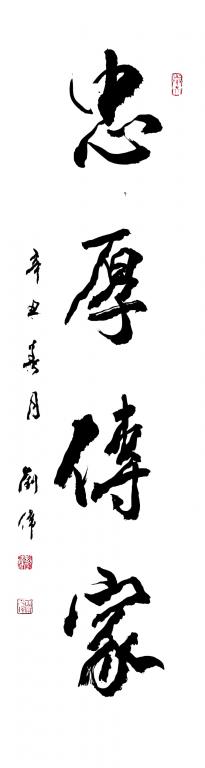 忠厚傳家
辛丑春月 劉偉